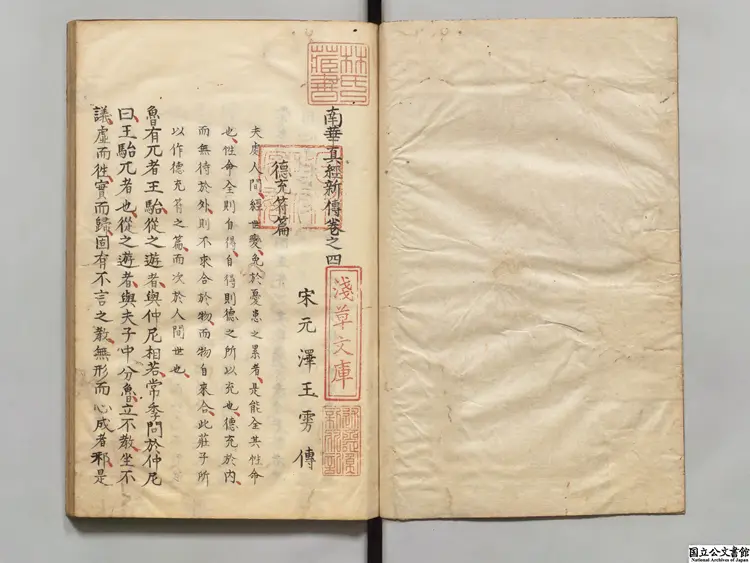 南華真經新傳卷之四
宋元澤王雱傳
德充符篇
夫處人間經世變免於憂患之累者是能全其性命
也性命全則自得自得則德之所以充也德充於内
而無待於外則不求合於物而物自來合此莊子所
以作德充符之篇而次於人間世也
魯有兀者王駘從之遊者與仲尼相若常季問於仲尼
曰王駘兀者也從之遊者與夫子中分魯立不教坐不
議虛而往實而歸固有不言之教無形而心成者邪是
林氏藏書
淺草文庫
国立公文書館
National Archives of Japan